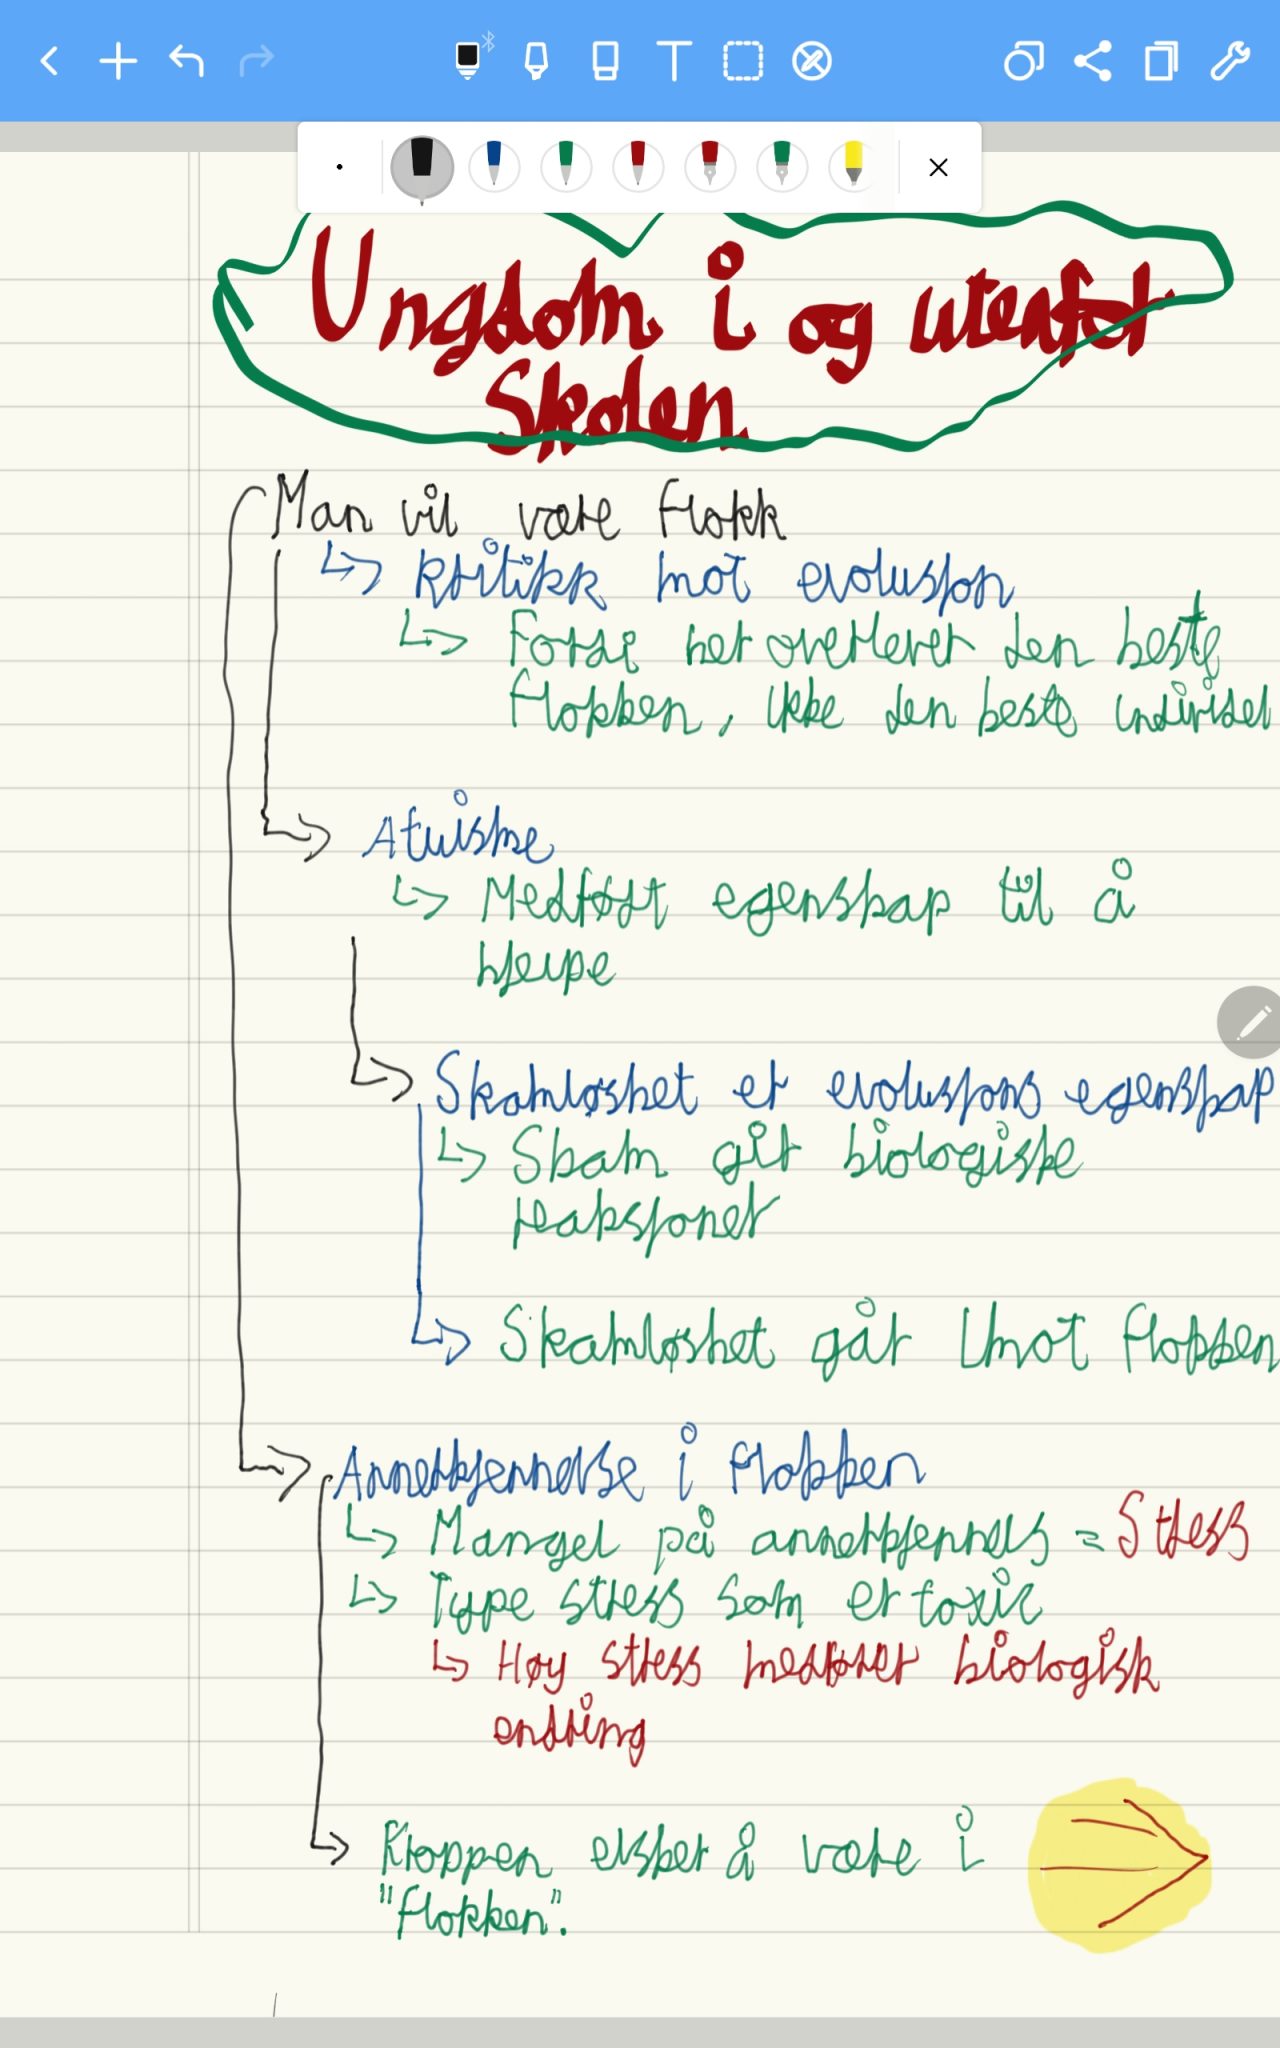 Ungdom i og utenfor
Skolen
Man vil være flokk
↳ Kritikk mot evolusjon
↳ Forsi her overlever den beste
flokken, ikke den beste individet
→ Atuisme
↳ Medfødt egenskap til å
hjelpe
→ Skamløshet er evolusjons egenskap
↳ Skam gir biologiske
reaksjoner
→ Skamløshet går imot flokken
→ Annerkjennelse i flokken
↳ Mangel på annerkjennels = Stress
↳ Type stress som er toxic
↳ Høy stress medfører biologisk
endring
→ Kroppen elsker å være i
"flokken".